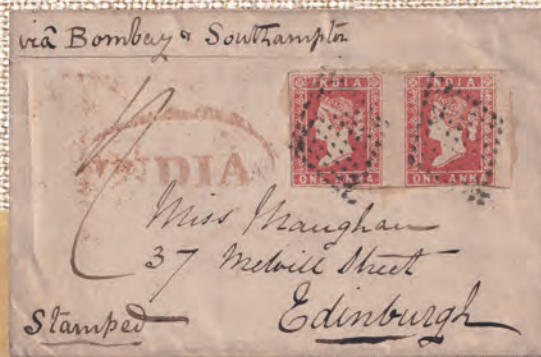 via Bombay & Southampton
INDIA INDIA
ONE ANNA ONE ANNA
INDIA
Miss Maughan
37 Melvill Street
Edinburgh
Stamped